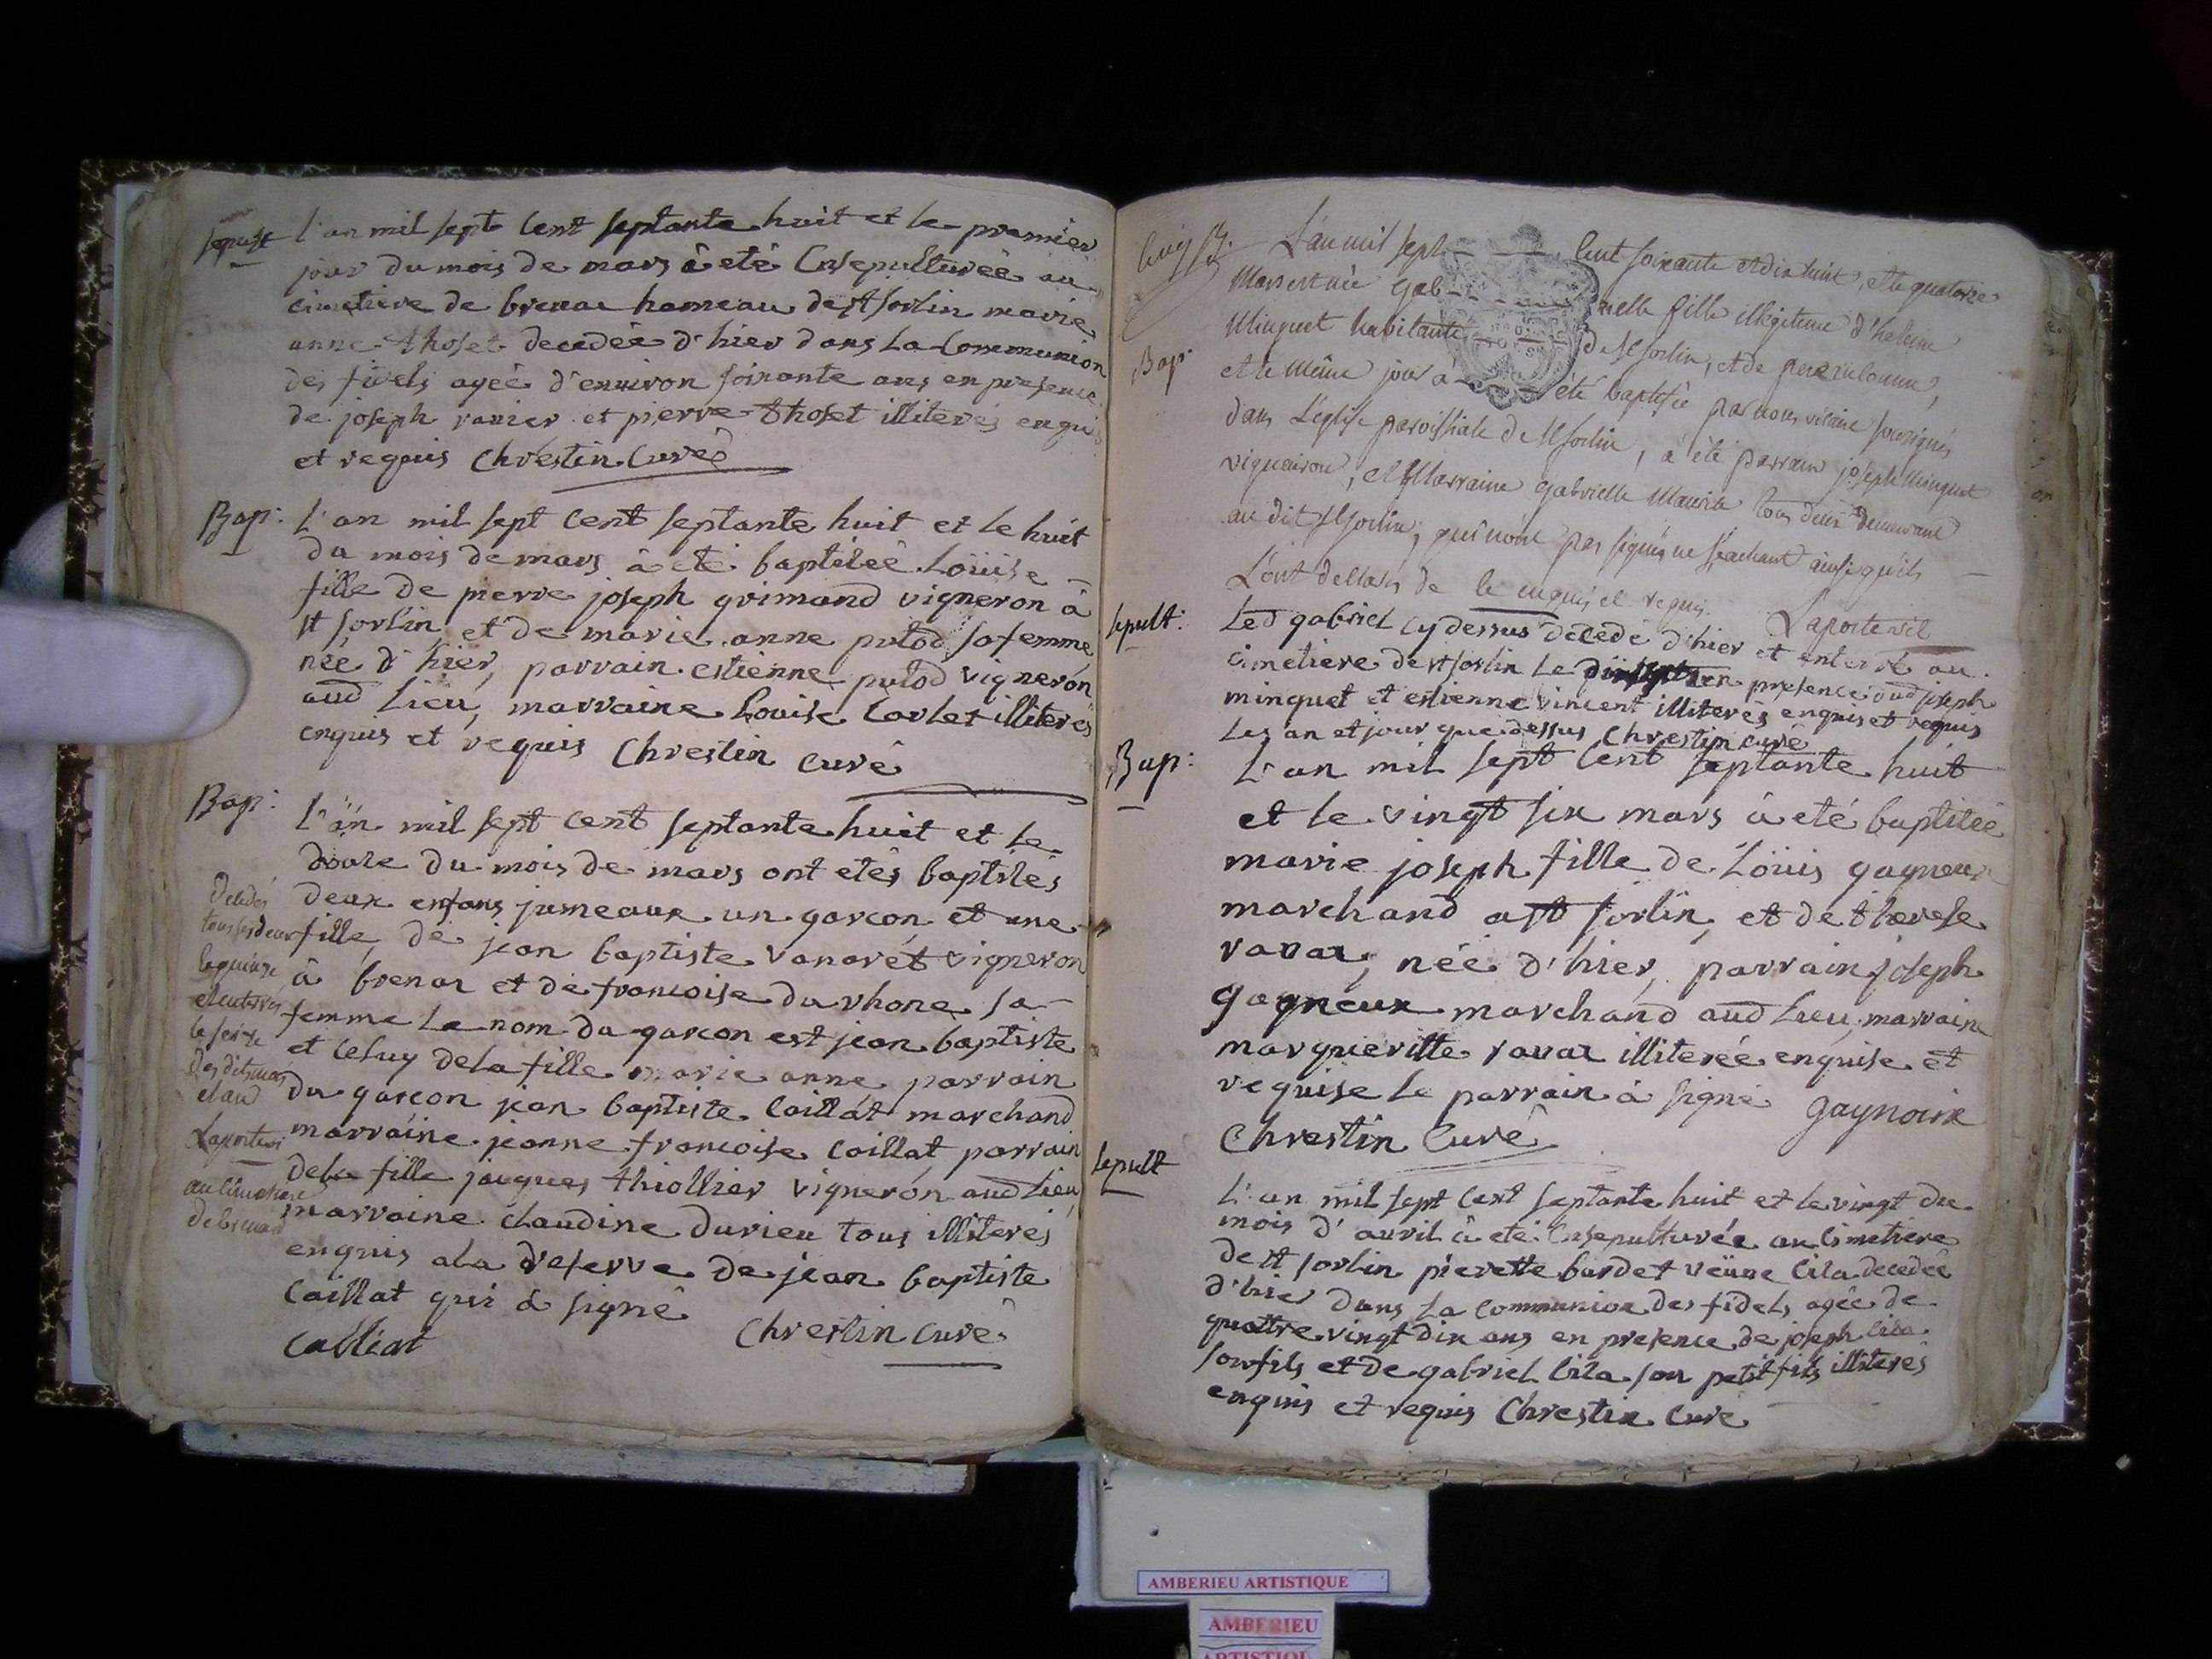 sepult
l'an mil sept cent septante huit et le premier
jour du mois de mars à eté ensepulturée au
cimetiere de brenar hameau de st sorlin marie
anne thoset decedée d'hier dans la communion
des fidels agée d'environ soixante ans en presence
de joseph ravier et pierre thoset illiterés enquis
et requis Chrestin Curé
Bap:
L'an mil sept cent septante huit et le huit
du mois de mars à eté baptisée Loüise
fille de pierre joseph grimand vigneron à
st sorlin et de marie anne putod sa femme
née d'hier, parrain estienne putod vigneron
aud lieu, marraine Louise Carlet illiterés
enquis et requis Chrestin curé
Bap:
L'an mil sept cent septante huit et le
douze du mois de mars ont etés baptisés
deux enfans jumeaux un garcon et une
fille, de jean baptiste vanarét vigneron
à brenar et de francoise du rhone sa
femme le nom du garcon est jean baptiste
et celuy de la fille marie anne parrain
du garcon jean baptiste Caillat marchand
marraine jeanne francoise Caillat parrain
de la fille jacques thiollier vigneron aud lieu
marraine claudine durieu tous illiterés
enquis a la reserve de jean baptiste
Caillat qui à signé
Calliat Chrestin curé
decedés
tous les deux
le quinze
et enterrés
le seize
des dits mars
et an
Laporte vi
au cimetiere
de brenard
L'an mil sept cent soixante et dix huit, et le quatorze
Mars est née Gabrielle fille illegitime d'helene
Minguet habitante de St Sorlin, et de pere inconnu,
Bap:
et le même jour a été baptisée par nous vicaire soussigné
dans L'eglise paroissiale de St sorlin, a été parrain joseph Minguet
vigneron, et Marraine gabrielle tous deux demeurant
au dit St sorlin, qui n'ont pas signés ne sçachant ainsi qu'ils
L'ont declaré de ce enquis et requis. Laporte vic
sepult:
Led gabriel cy dessus decedé d'hier et enterré au
cimetiere de st sorlin le en presence dud joseph
minguet et estienne vincent illiterés enquis et requis
les an et jour que dessus Chrestin curé
Bap:
L'an mil sept cent septante huit
et le vingt six mars à eté baptisée
marie joseph fille de Loüis gagneux
marchand a st sorlin, et de therese
ravar, née d'hier, parrain joseph
gagneux marchand aud lieu, marraine
margueritte ravar illiterée enquise et
requise le parrain à signé gaynoux
Chrestin Curé
sepult
L'an mil sept cent septante huit et le vingt du
mois d'avril à eté ensepulturée au cimetiere
de st sorlin pierette burdet veüve Cila decedée
d'hier dans la communion des fidels agée de
quattre vingt dix ans en presence de joseph cila
son fils et de gabriel Cila son petit fils illiterés
enquis et requis Chrestin curé
AMBERIEU ARTISTIQUE
AMBERIEU
ARTISTIQUE